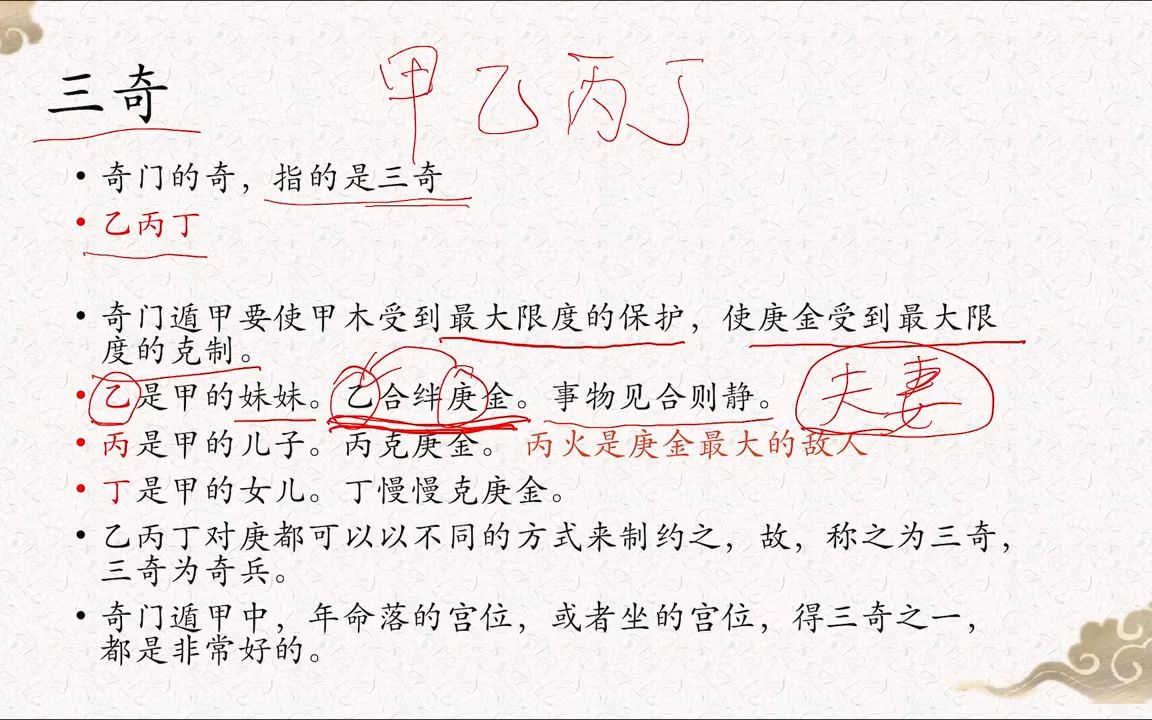 三奇
甲乙丙丁
• 奇门的奇，指的是三奇
• 乙丙丁
• 奇门遁甲要使甲木受到最大限度的保护，使庚金受到最大限
度的克制。
• 乙是甲的妹妹。乙合绊庚金。事物见合则静。
夫妻
• 丙是甲的儿子。丙克庚金。 丙火是庚金最大的敌人
• 丁是甲的女儿。丁慢慢克庚金。
• 乙丙丁对庚都可以以不同的方式来制约之，故，称之为三奇，
三奇为奇兵。
• 奇门遁甲中，年命落的宫位，或者坐的宫位，得三奇之一，
都是非常好的。